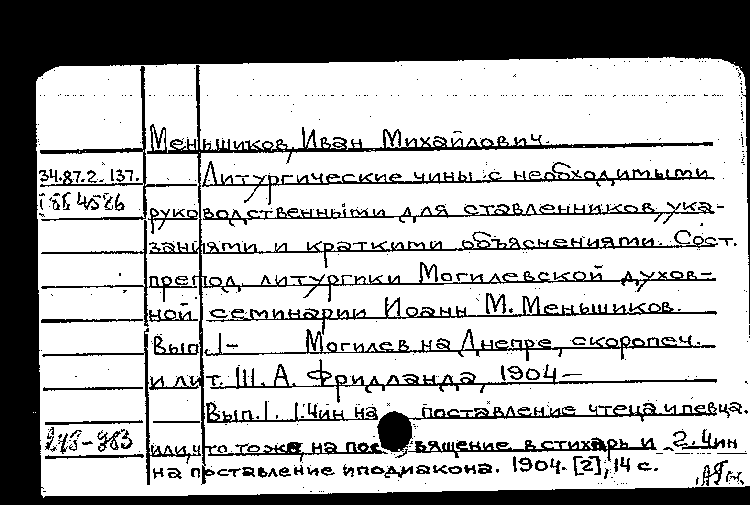 Меньшиков, Иван Михайлович.
34.87.2.137. Литургические чины с необходимыми
руководственными для ставленников, ука-
заниями и краткими объяснениями. Сост.
препод. литургики Могилевской духов-
ной семинарии Иоанн М. Меньшиков.
Вып. 1- Могилев на Днепре, скоропеч.
и лит. Ш. А. Фридланда, 1904-
Вып. 1. 1. Чин на поставление чтеца и певца.
или, что тоже, на посвящение в стихарь и 2. Чин
на поставление иподиакона. 1904. [2], 14 с.